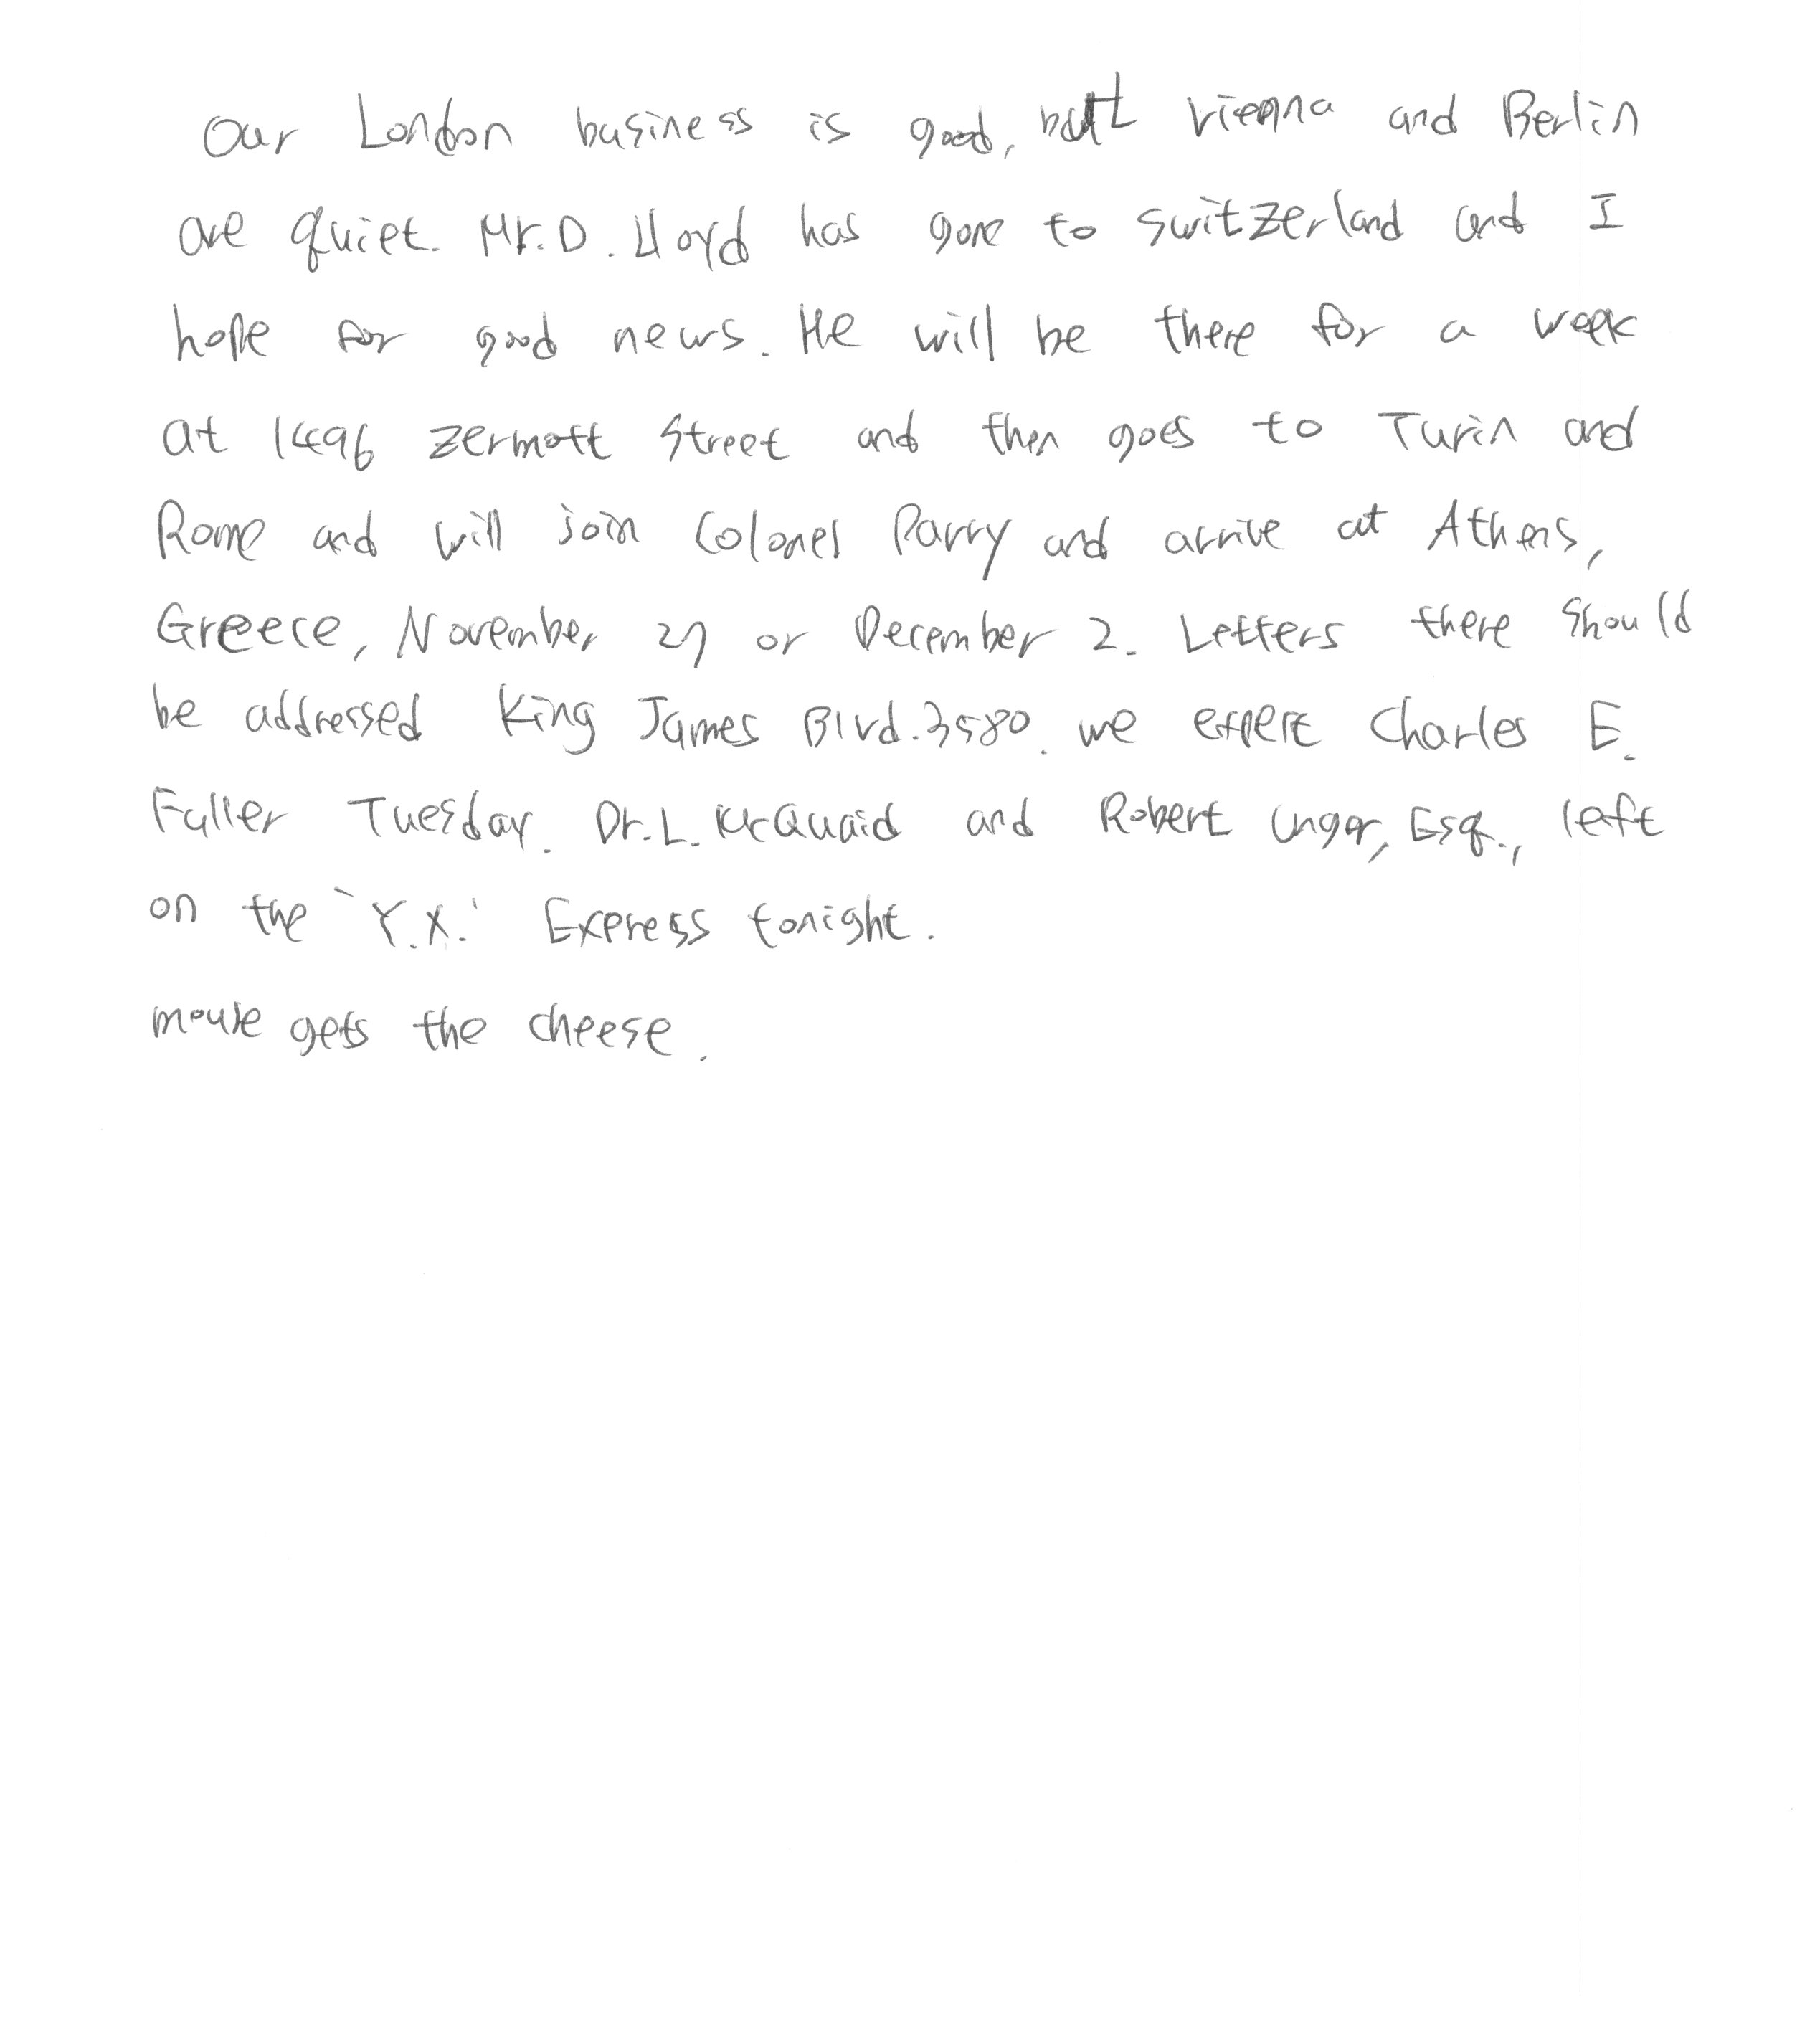 Our London business is good, but Vienna and Berlin
are quiet. Mr. D. Lloyd has gone to Switzerland and I
hope for good news. He will be there for a week
at 1496 Zermott Street and then goes to Turin and
Rome and will join Colonel Parry and arrive at Athens,
Greece, November 27 or December 2. Letters there should
be addressed King James Blvd. 3580. We expect Charles E.
Fuller Tuesday. Dr. L. McQuaid and Robert Unger, Esq., left
on the "Y.X." Express tonight.
mouse gets the cheese.